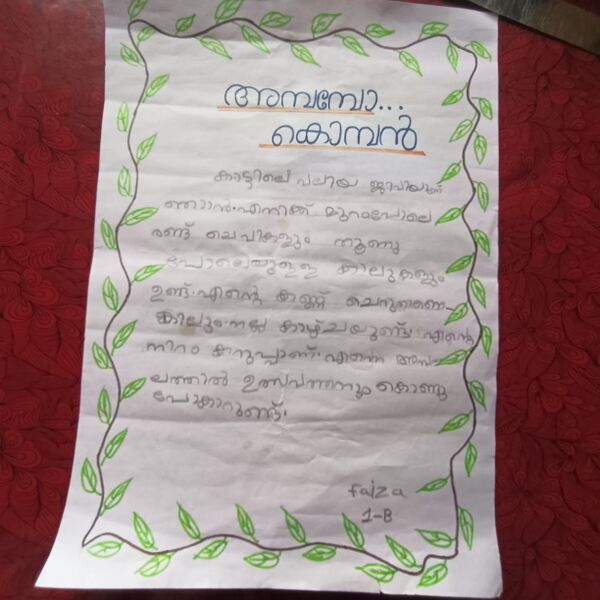 അമ്പമ്പോ...
കൊമ്പൻ
കാട്ടിലെ വലിയ ജീവിയാണ്
ഞാൻ. എനിക്ക് മുറംപോലെ
രണ്ട് ചെവികളും തൂണു
പോലെയുള്ള കാലുകളും
ഉണ്ട്. എന്റെ കണ്ണ് ചെറുതാണെ-
ങ്കിലും നല്ല കാഴ്ചയുണ്ട്. എന്റെ
നിറം കറുപ്പാണ്. എന്നെ അമ്പ
ലത്തിൽ ഉത്സവത്തിനും കൊണ്ടു
പോകാറുണ്ട്.
Faiza
1-B